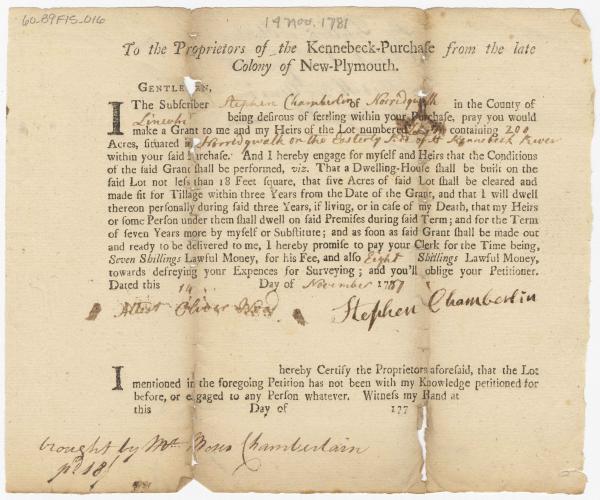 60-89FIS-016
14 Nov. 1781
To the Proprietors of the Kennebeck-Purchase from the late
Colony of New-Plymouth.
GENTLEMEN,
I The Subscriber Stephen Chamberlin of Norridgwalk in the County of
Lincoln being desirous of settling within your Purchase, pray you would
make a Grant to me and my Heirs of the Lot numbered containing 200
Acres, situated in Norridgwalk on the Easterly Side of Kennebeck River
within your said Purchase. And I hereby engage for myself and Heirs that the Conditions
of the said Grant shall be performed, viz. That a Dwelling-House shall be built on the
said Lot not less than 18 Feet square, that five Acres of said Lot shall be cleared and
made fit for Tillage within three Years from the Date of the Grant, and that I will dwell
thereon personally during said three Years, if living, or in case of my Death, that my Heirs
or some Person under them shall dwell on said Premises during said Term; and for the Term
of seven Years more by myself or Substitute; and as soon as said Grant shall be made out
and ready to be delivered to me, I hereby promise to pay your Clerk for the Time being,
Seven Shillings Lawful Money, for his Fee, and also Eight Shillings Lawful Money,
towards defreying your Expences for Surveying; and you'll oblige your Petitioner.
Dated this 14 Day of November 1781
Attest Oliver Wood
Stephen Chamberlin
I hereby Certify the Proprietors aforesaid, that the Lot
mentioned in the foregoing Petition has not been with my Knowledge petitioned for
before, or engaged to any Person whatever. Witness my Hand at
this Day of 177
brought by Mr Moses Chamberlain
pd 18/